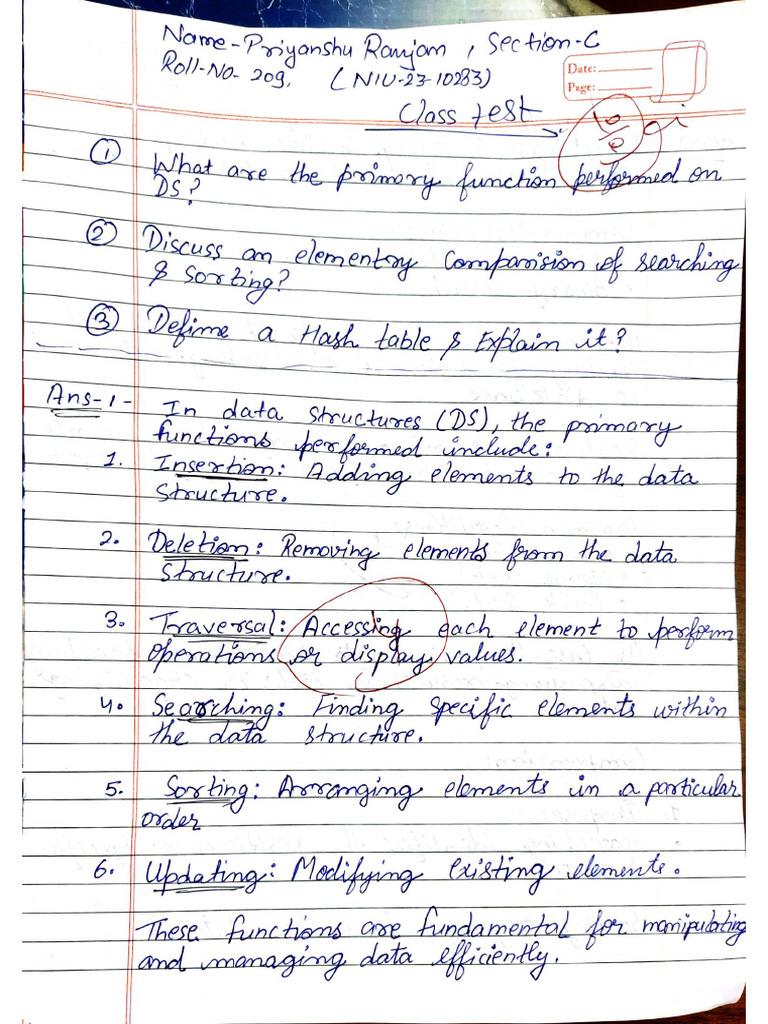 Name-Priyanshu Ranjan, Section-C
Roll-No- 209, (NIU-23-10283)
Date:
Page:
Class test
① What are the primary function performed on
DS?
② Discuss an elementry Comparision of searching
& Sorting?
③ Define a Hash table & Explain it?
Ans-1- In data structures (DS), the primary
functions performed include:
1. Insertion: Adding elements to the data
Structure.
2. Deletion: Removing elements from the data
Structure.
3. Traversal: Accessing each element to perform
operations or display values.
4. Searching: Finding specific elements within
the data structure.
5. Sorting: Arranging elements in a particular
order
6. Updating: Modifying existing elements.
These functions are fundamental for manipulating
and managing data efficiently.